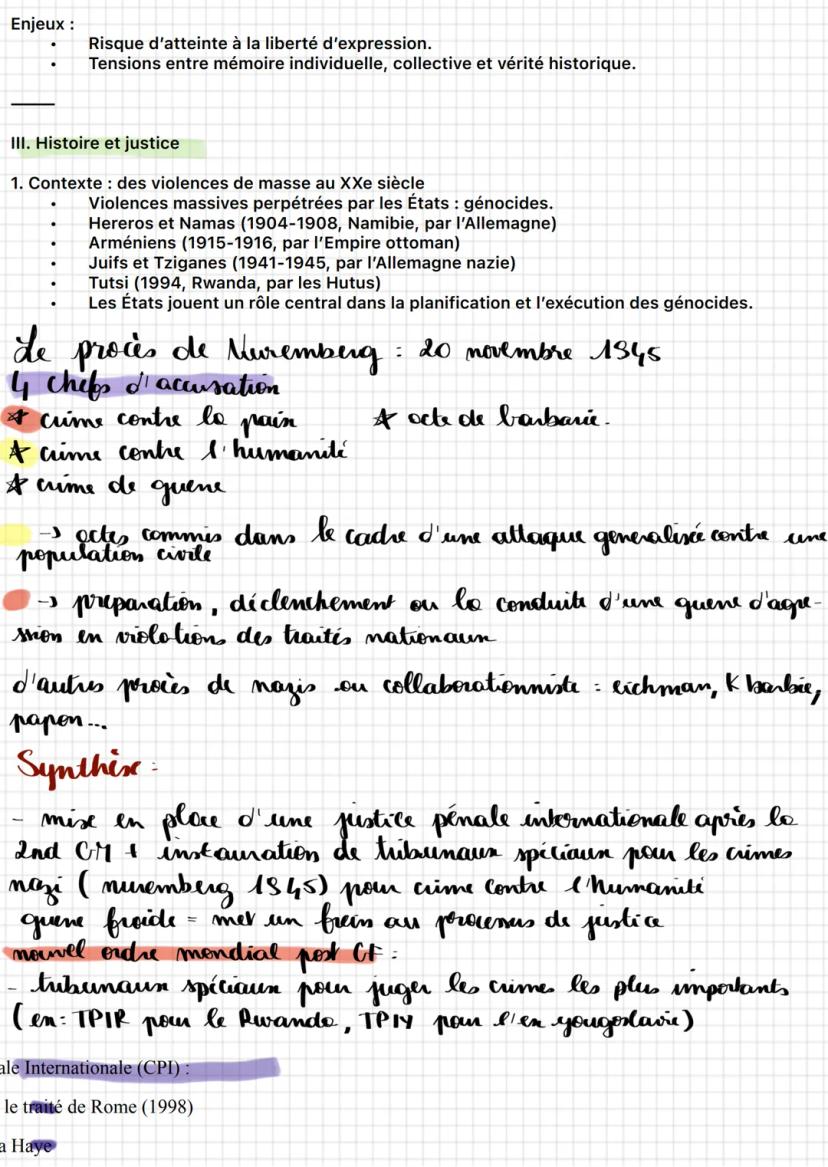 Enjeux :
• Risque d'atteinte à la liberté d'expression.
• Tensions entre mémoire individuelle, collective et vérité historique.
III. Histoire et justice
1. Contexte : des violences de masse au XXe siècle
• Violences massives perpétrées par les États : génocides.
• Hereros et Namas (1904-1908, Namibie, par l'Allemagne)
• Arméniens (1915-1916, par l'Empire ottoman)
• Juifs et Tziganes (1941-1945, par l'Allemagne nazie)
• Tutsi (1994, Rwanda, par les Hutus)
• Les États jouent un rôle central dans la planification et l'exécution des génocides.
Le procès de Nuremberg : 20 novembre 1945
4 chefs d'accusation
☆ crime contre la paix ☆ acte de barbarie.
☆ crime contre l'humanité
☆ crime de guerre
→ actes commis dans le cadre d'une attaque generalisée contre une
population civile
→ préparation, déclenchement ou la conduite d'une guerre d'agre-
ssion en violations des traités nationaux
d'autres procès de nazis ou collaborationniste : eichman, K barbie,
papon...
Synthèse :
- mise en place d'une justice pénale internationale après la
2nd GM + instauration de tribunaux spéciaux pour les crimes
nazi ( nuremberg 1945) pour crime contre l'humanité
guerre froide = met un frein au processus de justice
nouvel ordre mondial post GF :
- tribunaux spéciaux pour juger les crimes les plus importants
( ex : TPIR pour le Rwanda, TPIY pour l'ex yougoslavie)
ale Internationale (CPI) :
le traité de Rome (1998)
a Haye